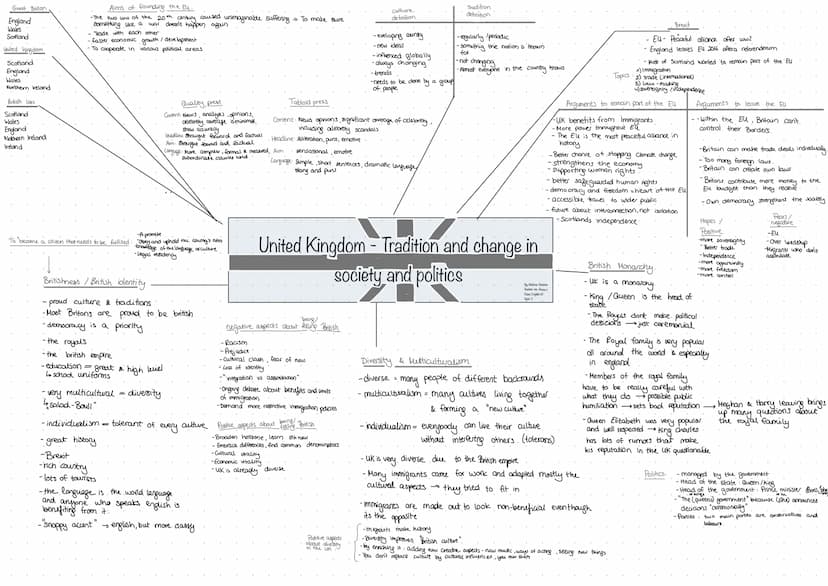 Great Britain
England
Wales
Scotland
United Kingdom
Scotland
England
Wales
Northern Ireland
British Isles
Scotland
Wales
England
Northern Ireland
Ireland
Aims of founding the EU
- The two wars of the 20th century caused unimaginable suffering → To make sure
something like a war doesn't happen again
- Trade with each other
- Faster economic growth / development
- To cooperate in various political areas
Culture
definition
- everlasting variety
- new ideas
- influenced globally
- always changing
- trends
- needs to be done by a group
of people
Tradition
definition
- regularly / periodic
- something the nation is known
for
- not changing
- Almost everyone in the country knows
Brexit
- EU - Peaceful alliance after war
- England leaves EU 2016 after a referendum
- most of Scotland wanted to remain part of the EU
Topics
1) Immigration
2) Trade (international)
3) Law-making
4) Sovereignty / Independence
Quality press
Content: News, analysis, opinions,
celebrity coverage is minimal,
Headline: Thought focused and factual
Aim: Thought focused and factual
Language: More complex, formal & neutral,
Tabloid press
Content: News, opinions, significant coverage of celebrity,
including celebrity scandals
Headline: Alliteration, puns, emotive
Aim: Sensational, emotive
Language: Simple, short sentences, dramatic language,
slang and puns!
Arguments to remain part of the EU
- UK benefits from immigrants
- More power throughout EU
- The EU is the most peaceful alliance in
history
- Better chance of stopping climate change
- strengthens the economy
- supporting woman rights
- better safeguarded human rights
- democracy and freedom = heart of the EU
- accessible travel to wider public
- future about interconnection, not isolation
- Scotlands independence
Arguments to leave the EU
- Within the EU, Britain can't
control their Borders
- Britain can make trade deals individually
- Too many foreign laws
- Britain can create own laws
- Britons contribute more money to the
EU budget than they receive
- Own democracy strengthens the society
Hopes /
Positive
- more sovereignty
- Better trade
- Independence
- more opportunity
- more freedom
Fears /
negative
- EU
United Kingdom - Tradition and change in
society and politics
To become a citizen that needs to be fulfilled
- A promise
- Legal residency
Britishness / British identity
- proud culture & traditions
- Most Britons are proud to be british
- democracy is a priority
- the royals
- the british empire
- education = great & high level
↳ school uniforms
- very multicultural = diversity
↳ "Salad-Bowl"
- individualism = tolerant of every culture
- great history
- Brexit
- rich country
- lots of tourists
- the language is the world language
and anyone who speaks english is
benefiting from it.
- "snoppy accent" → english, but more classy
Negative aspects about being / feeling British
- Racism
- Prejudice
- Cultural clash, fear of new
- Loss of identity
- "Integration vs assimilation"
- Ongoing debate about benefits and limits
of immigration
- Demand more restrictive immigration policies
Positive aspects about being / feeling British
- Broaden horizons, learn sth new
- Embrace differences, find common denominators
- Cultural vitality
- Economic vitality
- UK is already diverse
Diversity & Multiculturalism
- diverse = many people of different backrounds
- multiculturalism = many cultures living together
& forming a "new culture"
- individualism = everybody can live their culture
without interfering others (tolerans)
- UK is very diverse due to the British empire
- Many immigrants came for work and adapted mostly the
cultural aspects → they tried to fit in
- Immigrants are made out to look non-beneficial eventhough
its the opposite
Positive aspects
about diversity
in the UK
- Immigrants make history
- Diversity improves "British culture"
- By enriching it - adding new creative aspects - new music, ways of acting, seeing new things
British Monarchy
- UK is a monarchy
- King / Queen is the head of
state
- The Royals don't make political
decisions → just ceremonial
- The Royal family is very popular
all around the world & especially
in england
- Members of the royal family
have to be really careful with
what they do → possible public
humiliation → sets back reputation
→ Meghan & Harry leaving brings
up many questions about
the royal family
- Queen Elizabeth was very popular
and well respected → King Charles
has lots of rumors that make
his reputation in the UK questionable
Politics
- managed by the government
- Head of the state: Queen / King
- Head of the government: Prime minister
- "The (queens) government" because (s)he announces
decisions "ceremonially"
- Parties: two main parties are conservatives and
labours